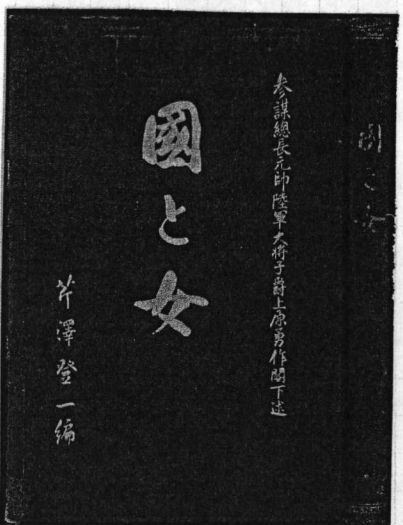 参謀總長元帥陸軍大将子爵上原勇作閣下述
國と女
芹澤登一編
國と女